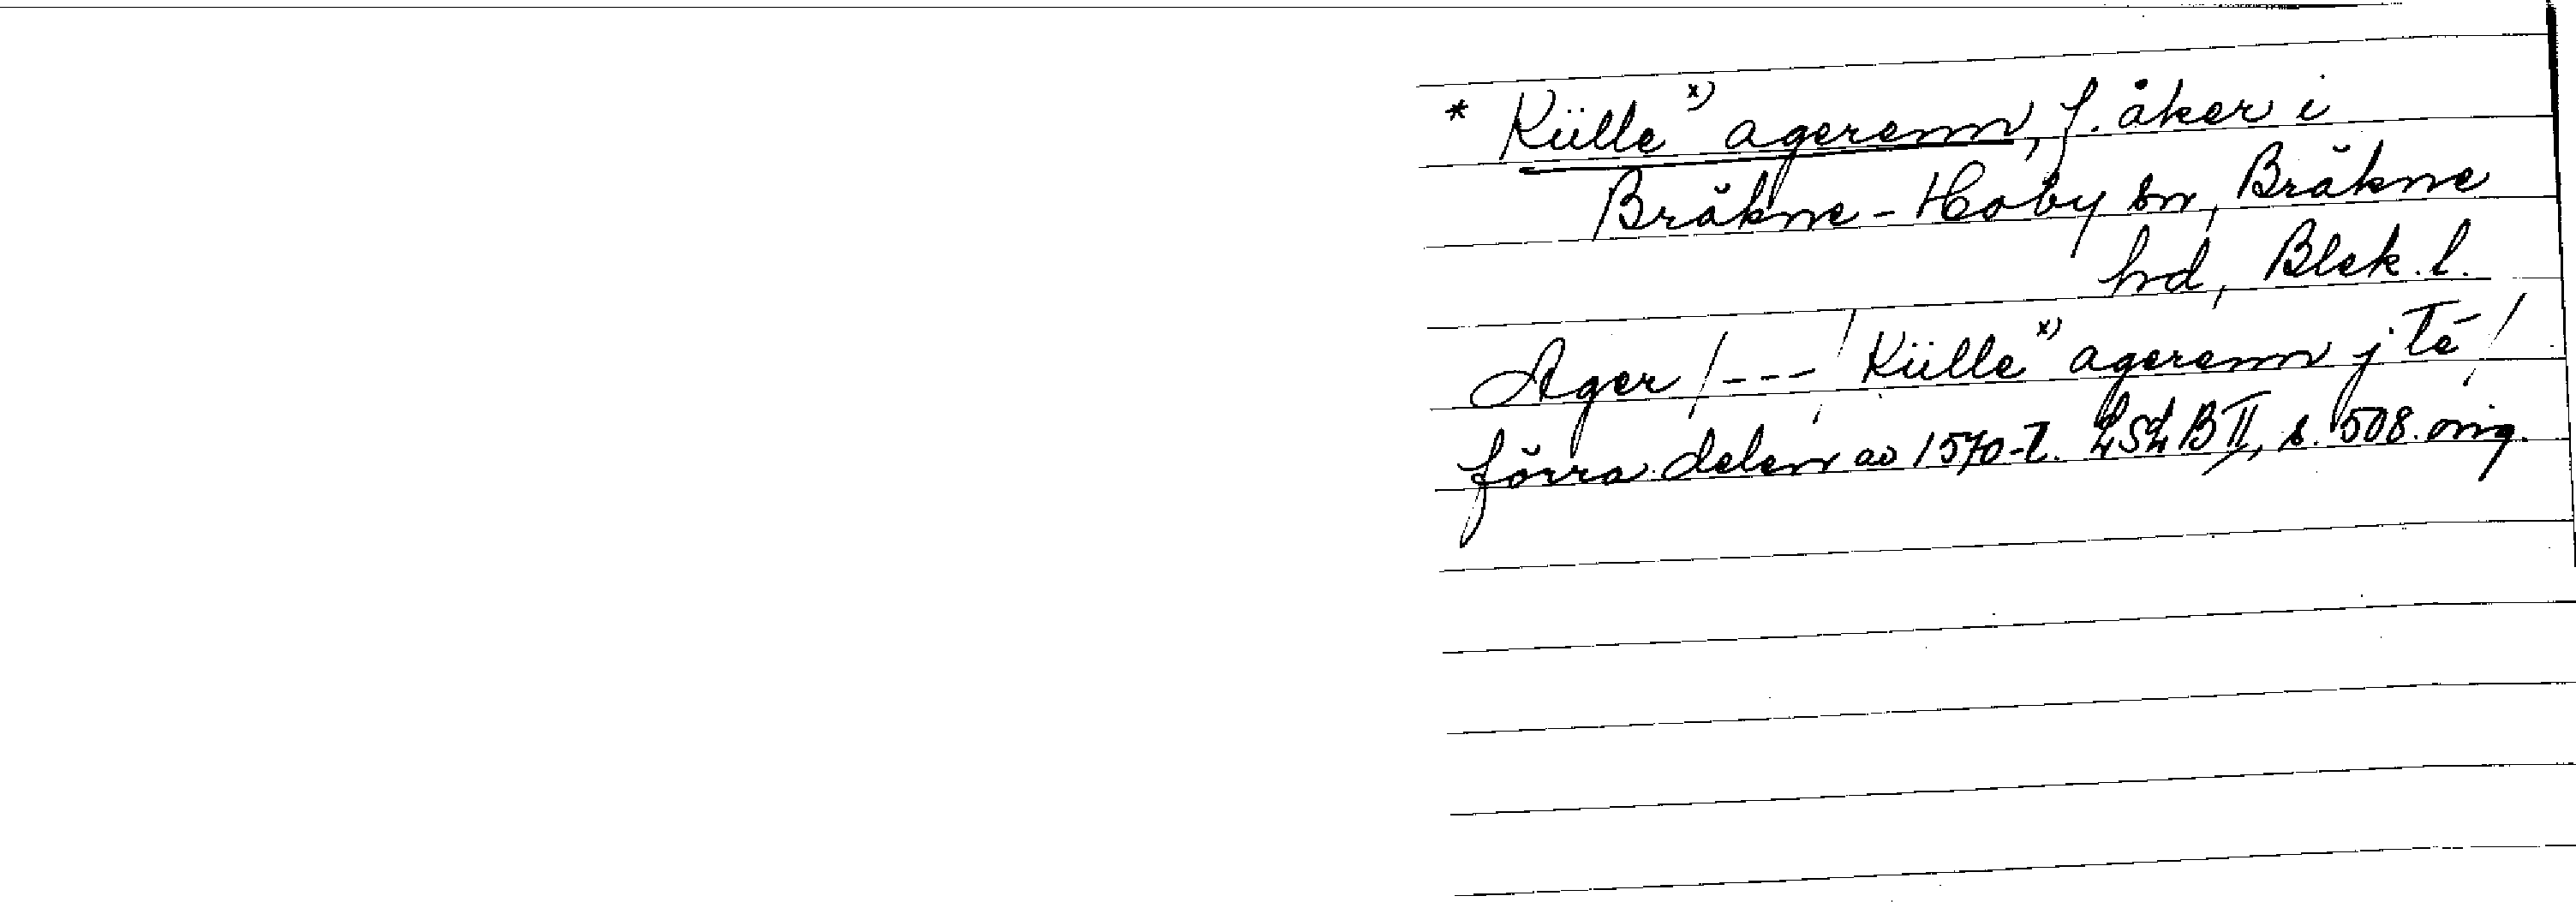 * Külle x) agerenn, f. åker i
Bräkne-Hoby sn, Bräkne
hd, Blek. l.
Ager /---/ Külle x) agerenn j Té/
förra delen av 1570-t. LSL BII, s. 508. orig.